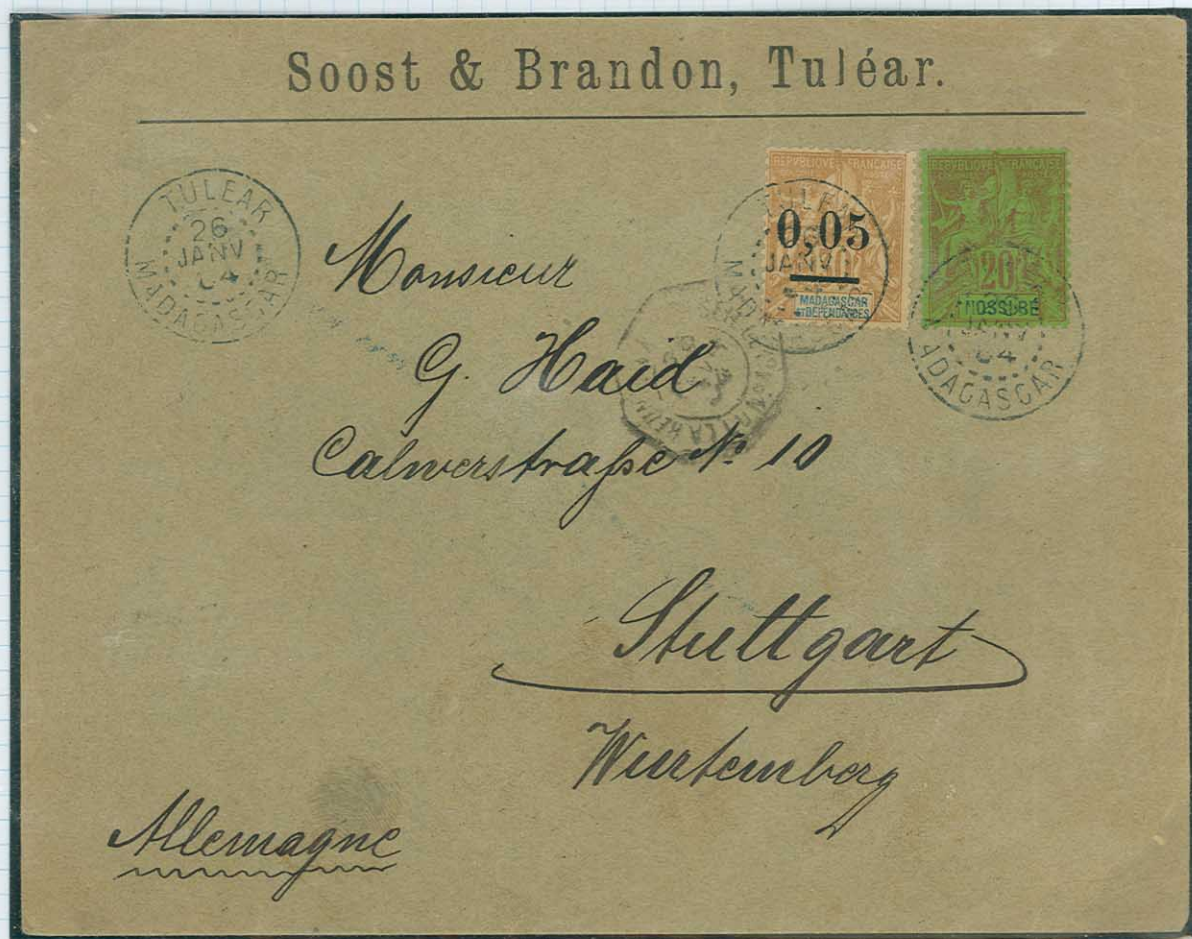 Soost & Brandon, Tuléar.
TULEAR
26
JANV
04
MADAGASCAR
REPUBLIQUE FRANCAISE
0,05
MADAGASCAR
ET DÉPENDANCES
TULEAR
JANV
REPUBLIQUE FRANCAISE
20
NOSSI-BÉ
JANV
04
MADAGASCAR
Monsieur
G. Haid
Calwerstraße No 10
Stuttgart
Wurtemberg
Allemagne